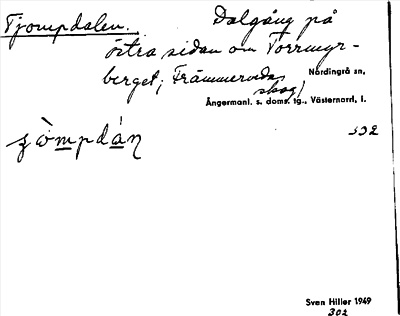 Tjompdalen. Dalgång på
östra sidan om Torrmyr-
berget; Främmervedas
skog/ Nordingrå sn,
Ångermanl. s. doms. tg., Västernorrl. l.
502
Sven Hiller 1949
302